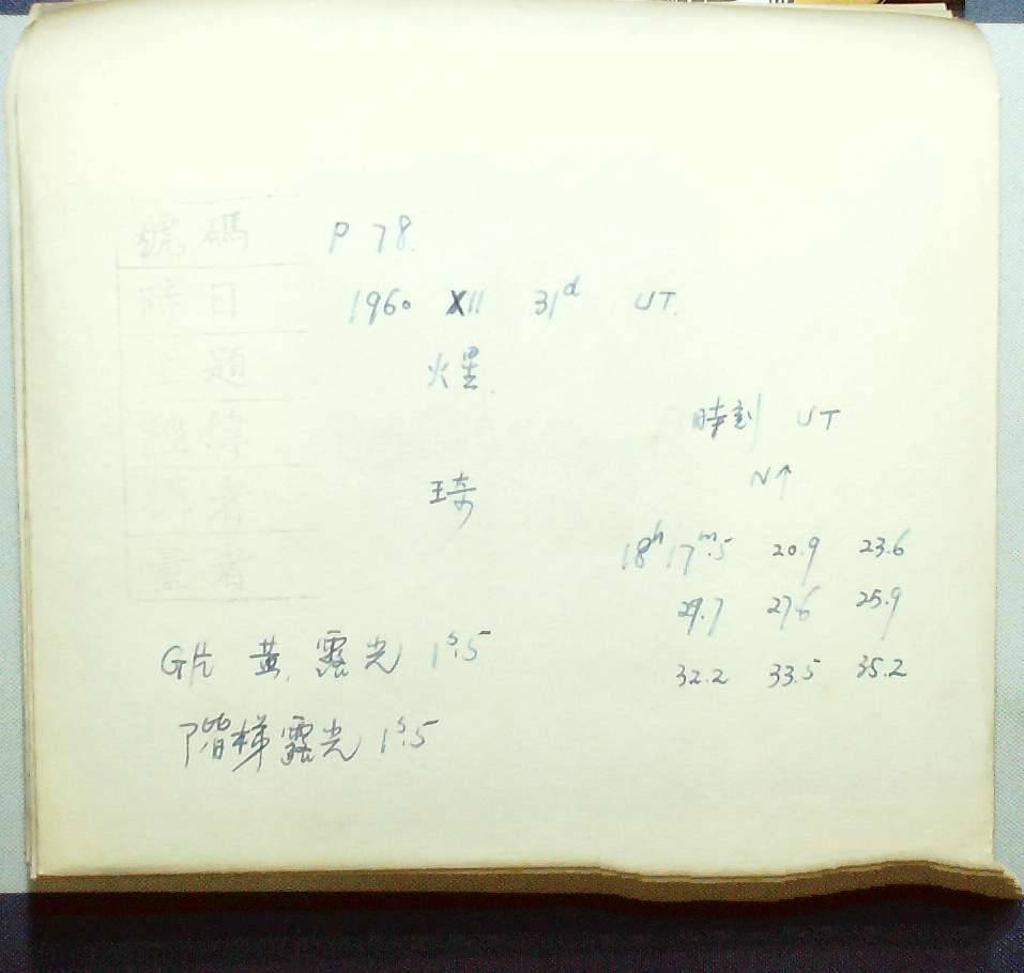 號碼 P 78.
時日 1960 XII 31d UT.
主題 火星.
時刻 UT
N↑
琦
18h 17m.5 20.9 23.6
29.7 27.6 25.9
32.2 33.5 35.2
G片 黄. 露光 1s.5
階梯露光 1s.5